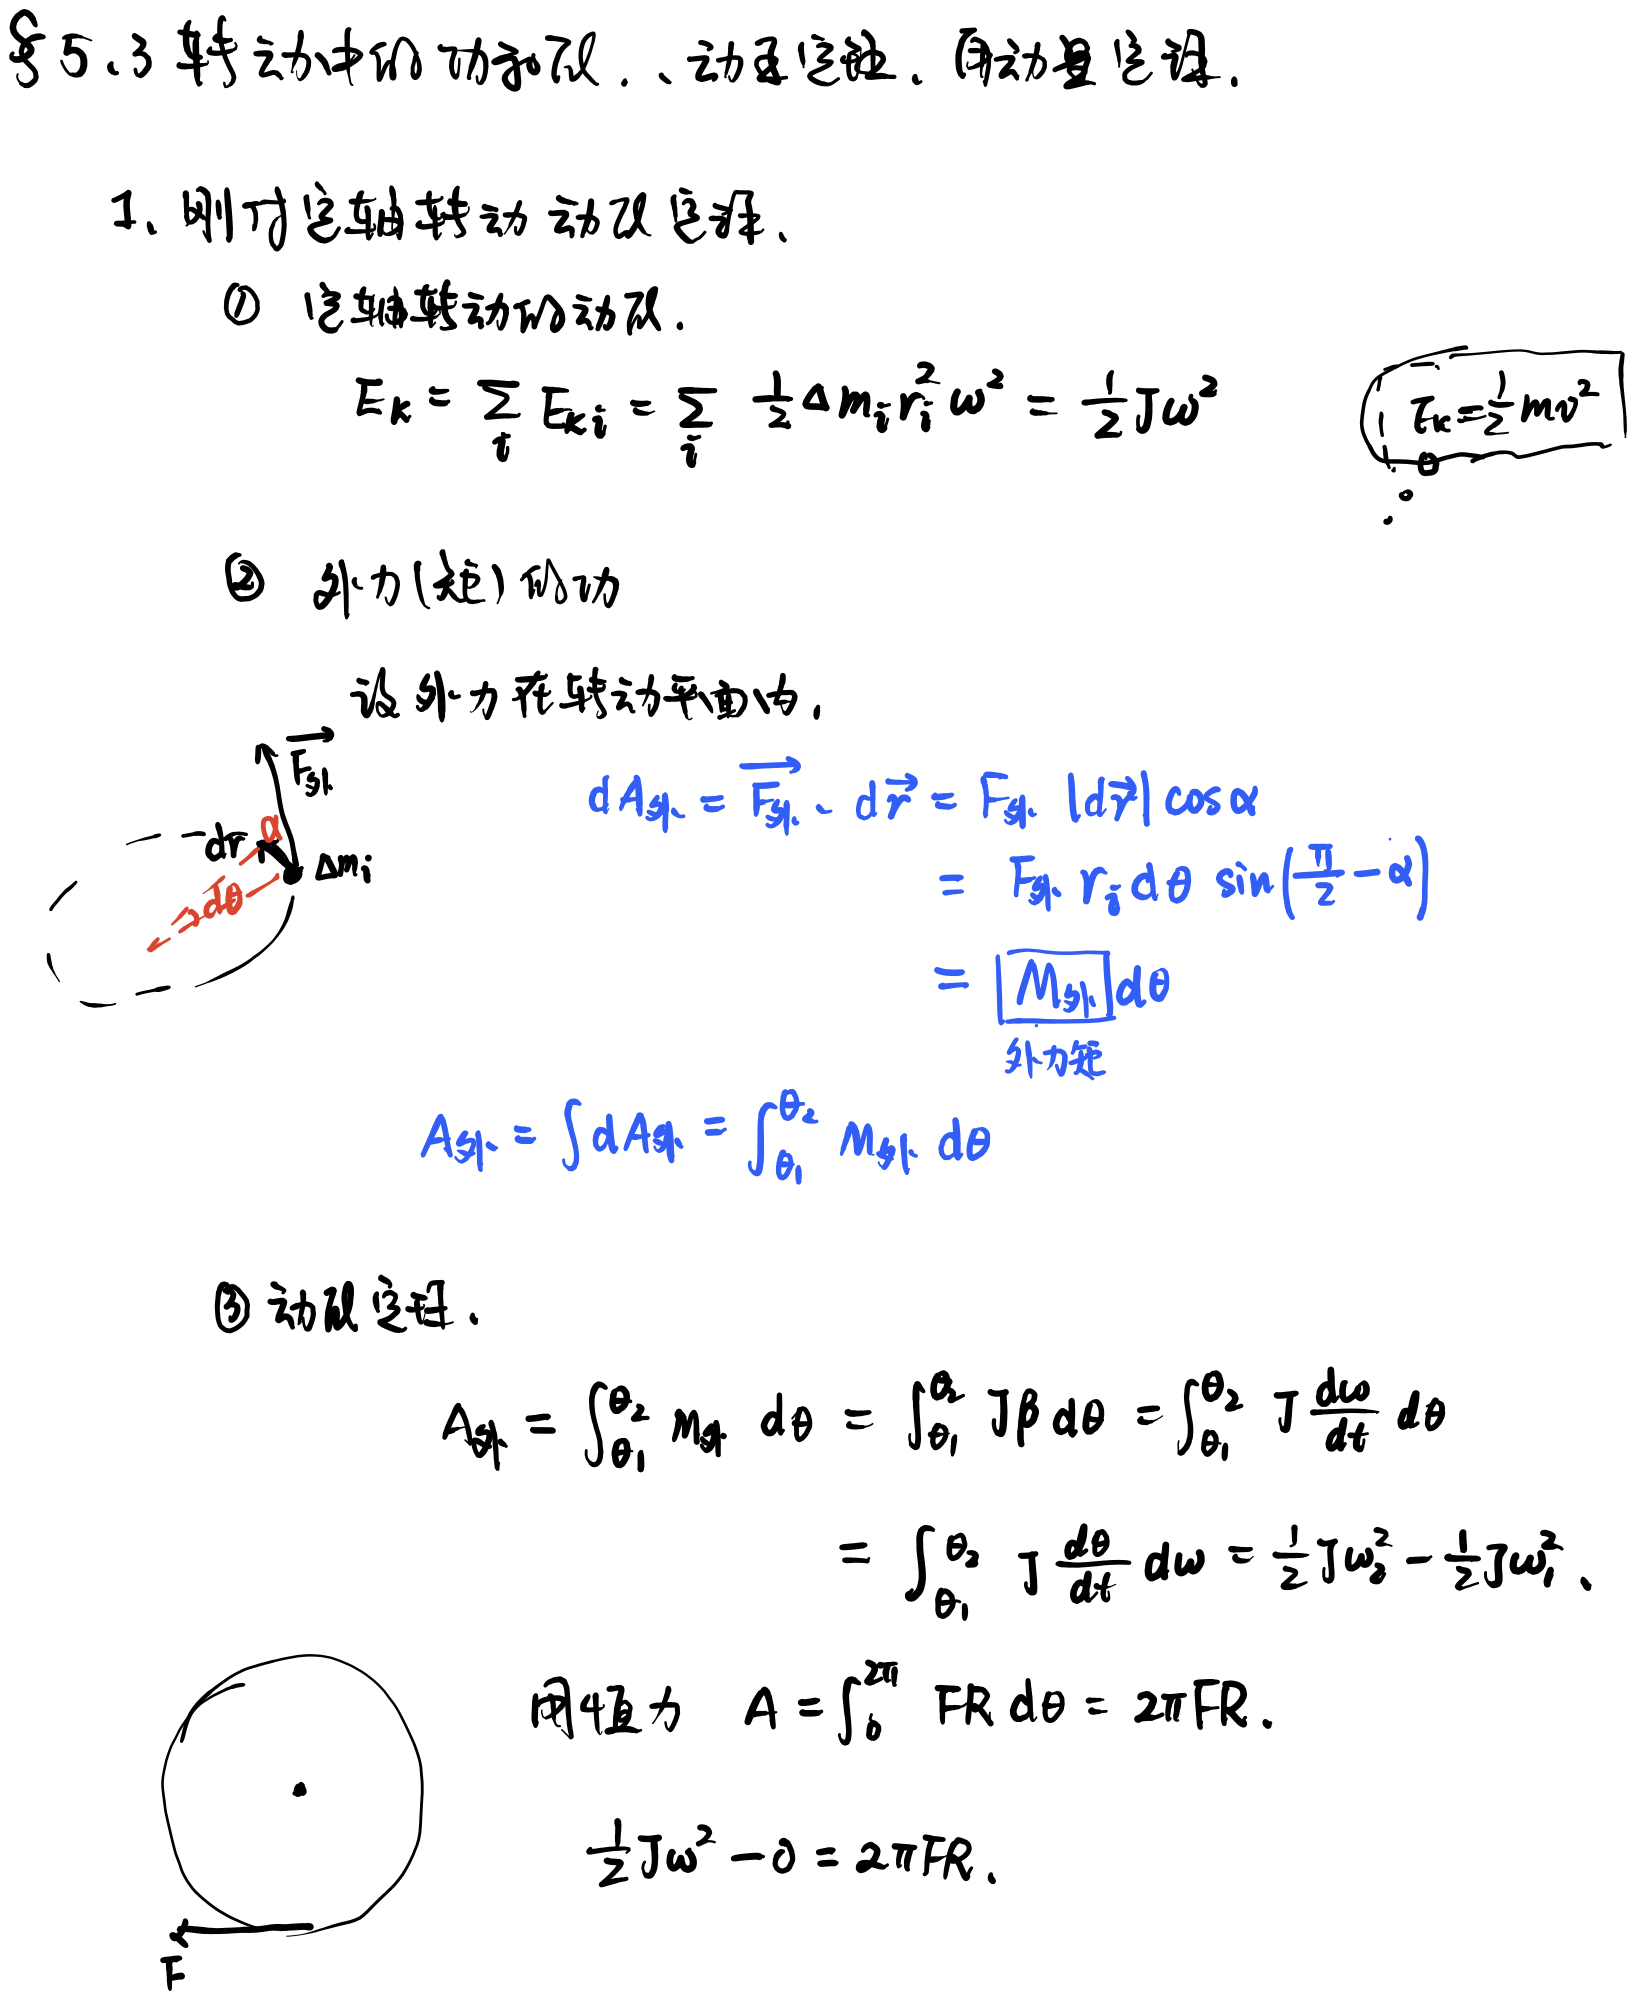 §5.3 转动中的功和能.、动量定理.角动量定理.
1、刚体定轴转动动能定理、
① 定轴转动的动能.
Eₖ = Σᵢ Eₖᵢ = Σᵢ ½Δmᵢrᵢ²ω² = ½Jω²
Eₖ=½mv²
② 外力(矩)的功
设外力在转动平面内.
F外
dr α
Δmᵢ
dθ
dA外 = F外 · dr = F外 |dr| cosα
= F外 rᵢ dθ sin(π/2 - α)
= M外 dθ
外力矩
A外 = ∫dA外 = ∫θ₁^θ₂ M外 dθ
③ 动能定理.
A外 = ∫θ₁^θ₂ M外 dθ = ∫θ₁^θ₂ Jβdθ = ∫θ₁^θ₂ J dω/dt dθ
= ∫θ₁^θ₂ J dθ/dt dω = ½Jω₂² - ½Jω₁²、
用恒力 A = ∫₀^2π FR dθ = 2πFR.
½Jω² - 0 = 2πFR.
F